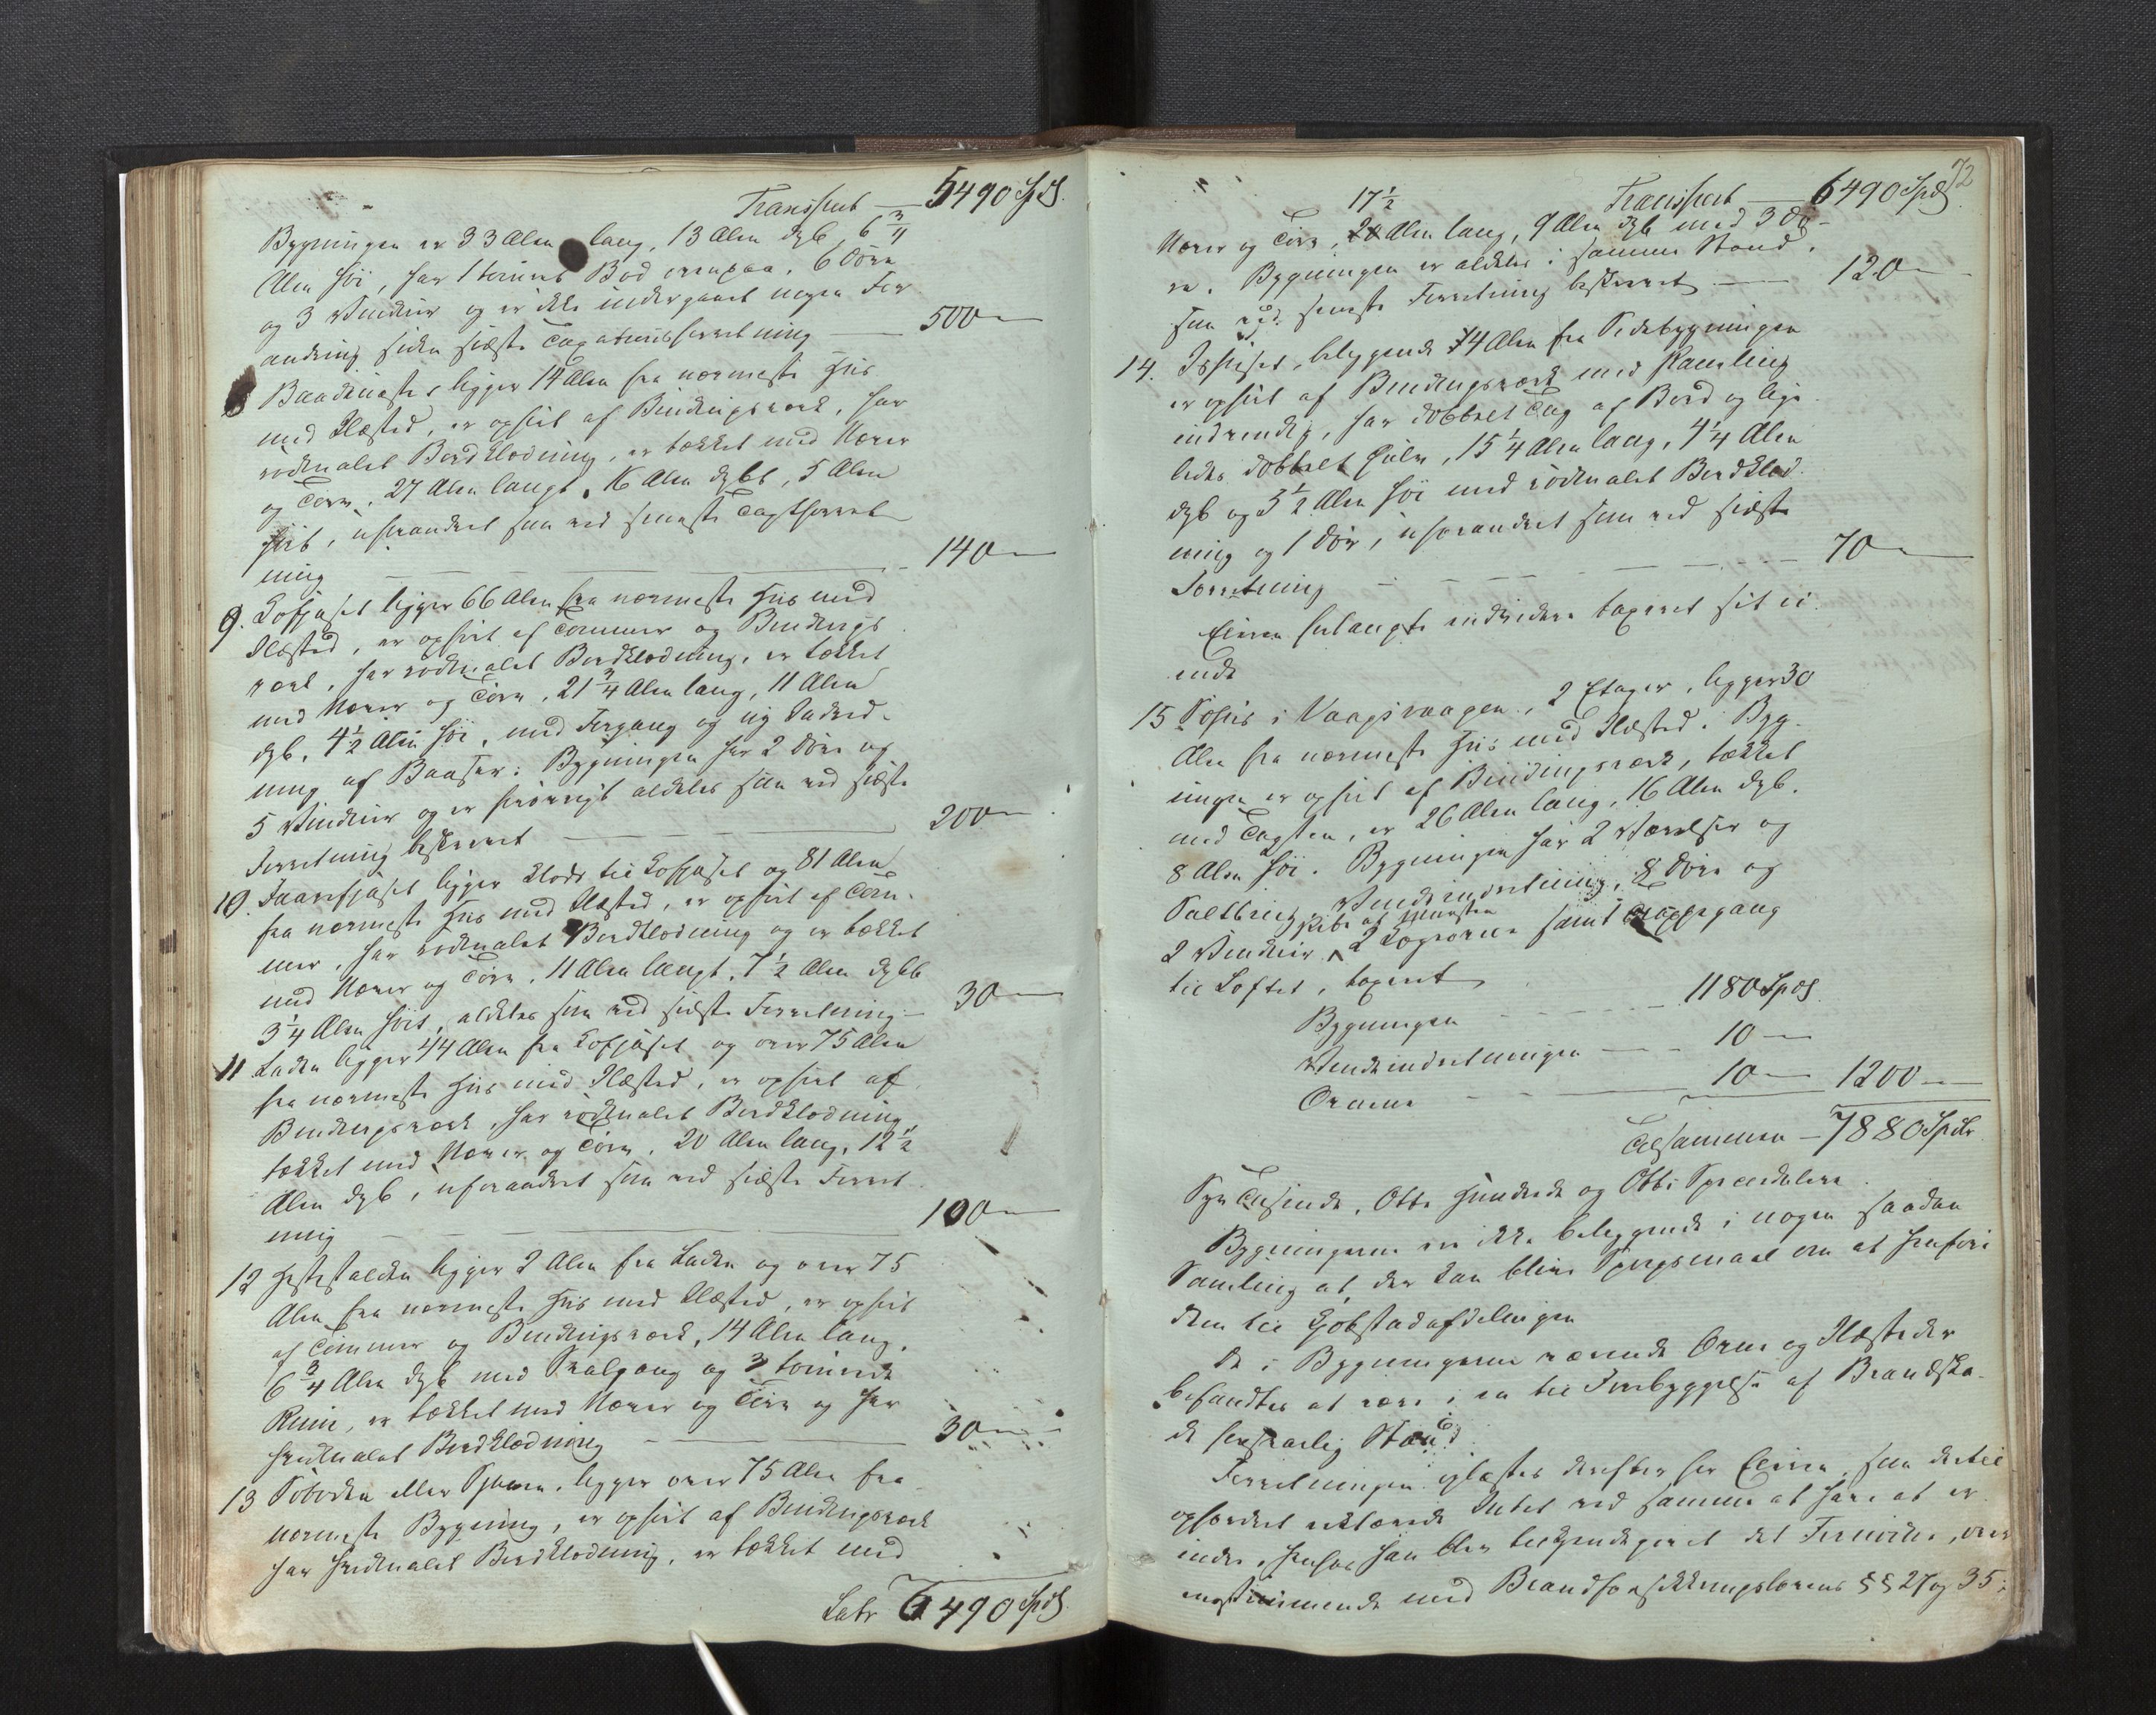 Transport — 5490 Spd.
Bygningen er 33 Alen lang, 13 Alen dyb, 6 3/4
Alen høi, har 1 tømret Bod ovenpaa, 6 Døre
og 3 Vinduer og er ikke undergaaet nogen For
andring siden sidste Taxationsforretning — 500 —
8 Baadnøstet, ligger 14 Alen fra nærmeste Huus
med Ildsted, er opført af Bindingsværk, har
rødmalet Bordklædning, er tækket med Næver
og Tørv, 27 Alen langt, 16 Alen dybt, 5 Alen
høit, uforandret som ved seneste Taxtforret
ning — 140 —
9. Kofjøset ligger 66 Alen fra nærmeste Huus med
Ildsted, er opført af Tømmer og Bindings
værk, har rødmalet Bordklædning, er tækket
med Næver og Tørv, 21 3/4 Alen lang, 11 Alen
dyb, 4 1/2 Alen høi, med Forgang og ny Indred-
ning af Baaser. Bygningen har 2 Døre og
5 Vinduer og er forøvrigt aldeles som ved sidste
Forretning beskrevet — 200 —
10. Faarefjøset ligger klods til Kofjøset og 81 Alen
fra nærmeste Huus med Ildsted, er opført af Tøm-
mer, har rødmalet Bordklædning og er tækket
med Næver og Tørv, 11 Alen langt, 7 1/2 Alen dybt
3 1/4 Alen høit, aldeles som ved sidste Forretning — 30 —
11 Laden ligger 44 Alen fra Kofjøset og over 75 Alen
fra nærmeste Huus med Ildsted, er opført af
Bindingsværk, har rødmalet Bordklædning,
tækket med Næver og Tørv, 20 Alen lang, 12 1/2
Alen dyb, uforandret som ved sidste Forret
ning — 100 —
12 Hestestalden ligger 2 Alen fra Laden og over 75
Alen fra nærmeste Huus med Ildsted, er opført
af Tømmer og Bindingsværk, 14 Alen lang,
6 3/4 Alen dyb med Svalgang og 3 tømrede
Rum, er tækket med Næver og Tørv og har
hvidmalet Bordklædning — 30 —
13 Søboden eller Sjaaen, ligger over 75 Alen fra
nærmeste Bygning, er opført af Bindingsværk
har hvidmalet Bordklædning, er tækket med
Latr 6490 Spd.
72
17 1/2 Transport — 6490 Spd.
Næver og Tørv, 20 Alen lang, 9 Alen dyb med 3 Dø-
re. Bygningen er aldeles i samme Stand,
som ved seneste Forretning beskrevet — 120 —
14. Ishuset, beliggende 74 Alen fra Sidebygningen
er opført af Bindingsværk med Paneling
indvendig, har dobbelt Tag af Bord og lige
ledes dobbelt Gulv, 15 1/4 Alen lang, 4 1/4 Alen
dyb og 3 1/2 Alen høi med rødmalet Bordklæd-
ning og 1 Dør, uforandret som ved sidste
Forretning — 70 —
Eieren forlangte endvidere taxeret sit ei-
ende
15 Søhus i Vaagsvaagen, 2 Etager, ligger 30
Alen fra nærmeste Huus med Ildsted. Byg-
ningen er opført af Bindingsværk, tækket
med Tagsten, er 26 Alen lang, 16 Alen dyb,
8 Alen høi. Bygningen har 2 Værelser og
Saltbing, Vindeindretning, 8 Døre og
2 Vinduer, 2 samt Trappegang
til Loftet, taxeret
Bygningen — 1180 Spd.
Vindeindretningen — 10 —
Ovnene — 10 — 1200 —
Tilsammen — 7880 Spdlr.
Syv Tusinde, Otte Hundrede og Otti Speciedaler.
Bygningerne er ikke beliggende i nogen saadan
Samling at der kan blive Spørgsmaal om at henføre
dem til Kjøbstadafdelingen
De i Bygningerne værende Ovne og Ildsteder
befandtes at være i en til Forebyggelse af Brandska-
de forsvarlig Stand.
Forretningen oplæstes derefter for Eieren, som dertil
opfordret erklærede Intet ved samme at have at er-
indre, hvorfor han blev betydet det Fornødne, over
ensstemmende med Brandforsikkringslovens §§ 27 og 35;